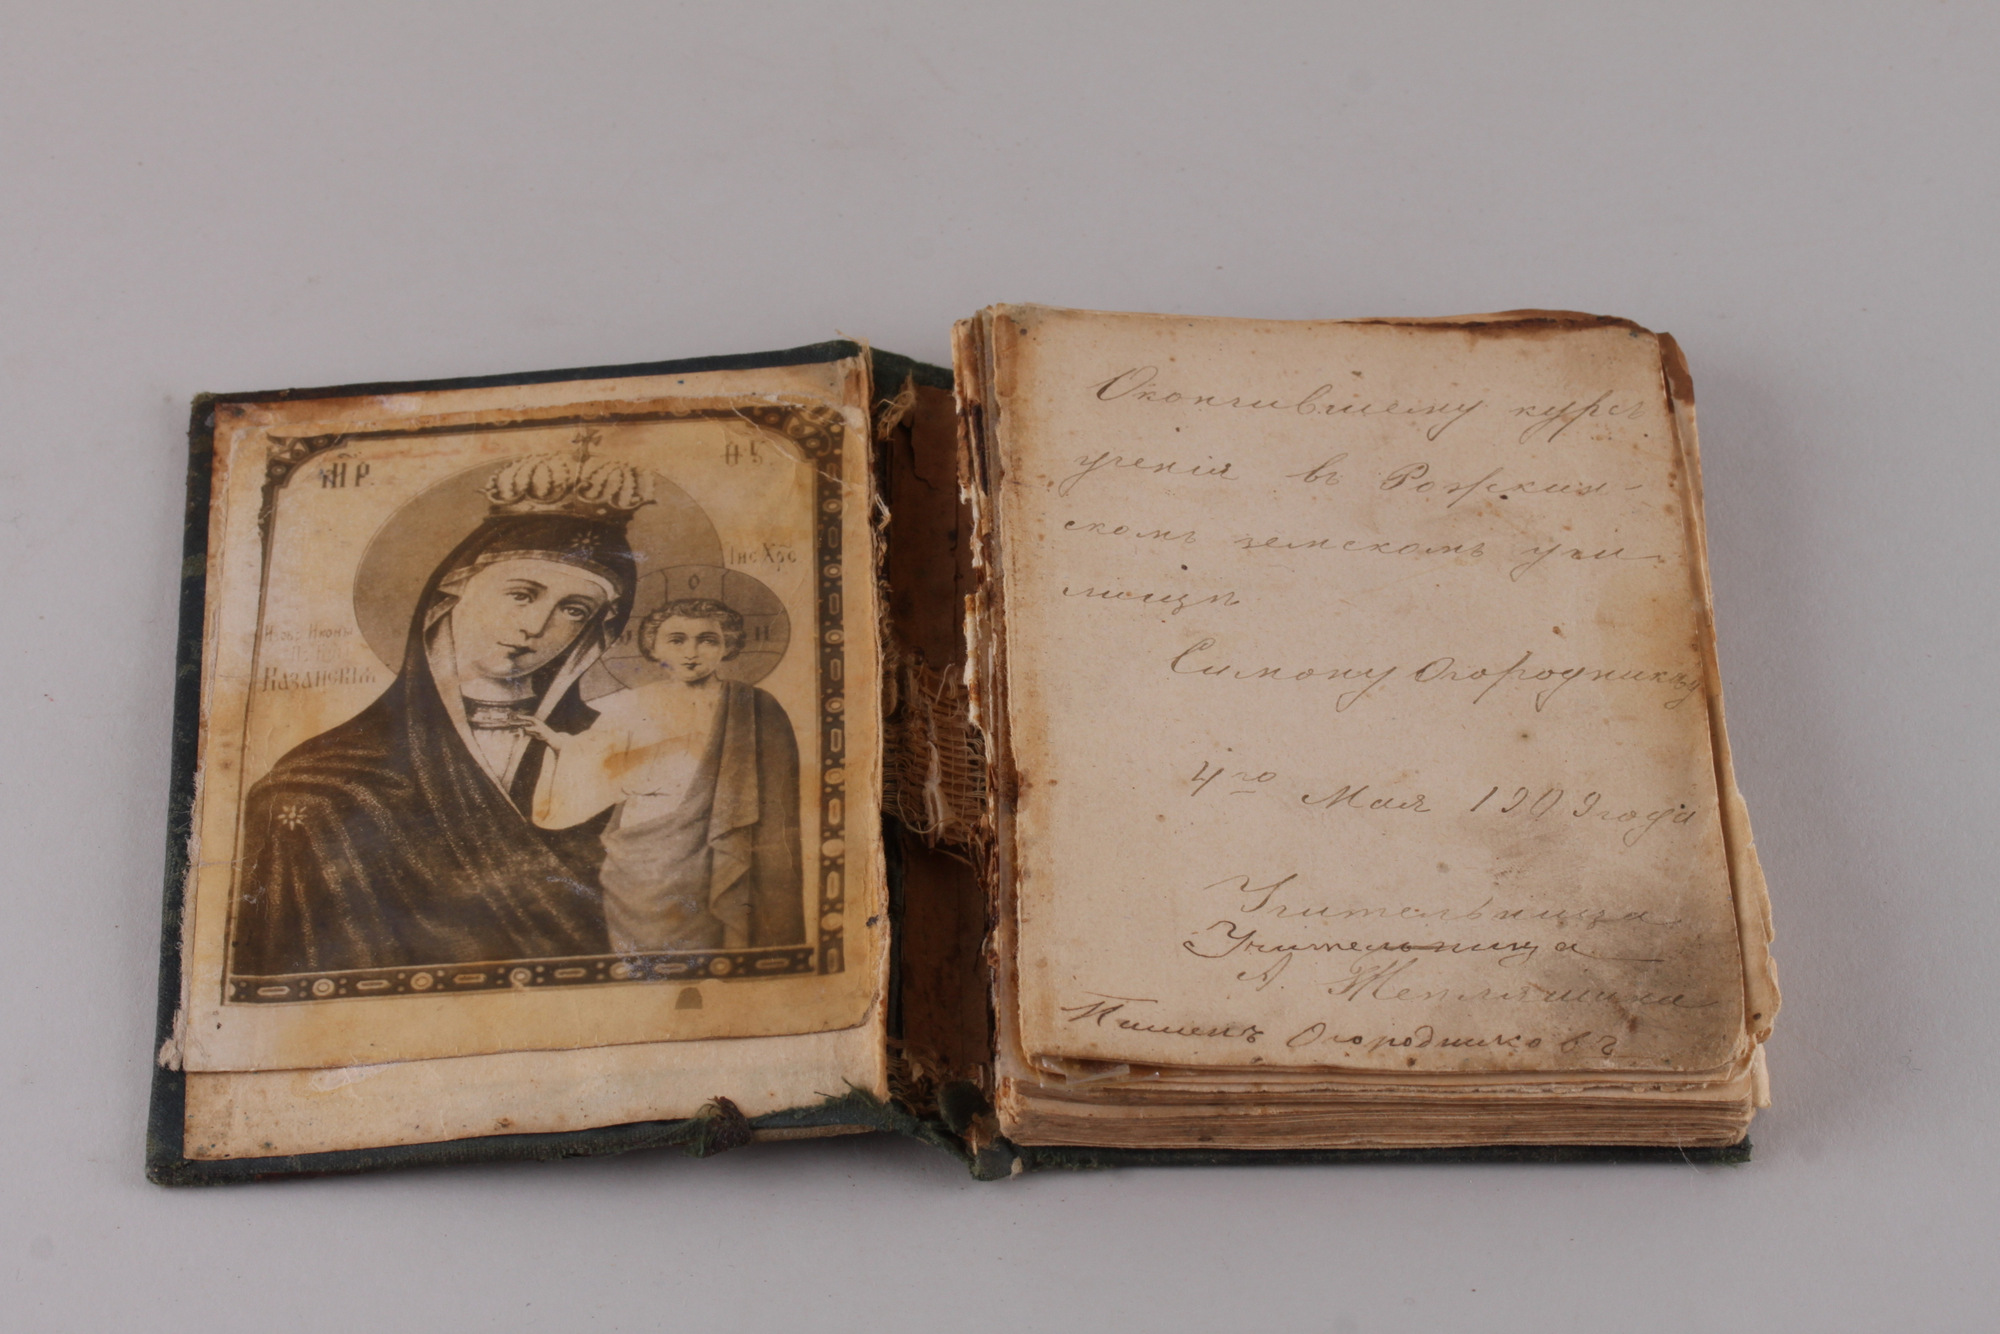 МР
Ѳ Б
Іис Хрс
О
Н
Иконы
Казанскія
Окончившему курсъ
ученія въ Рожкин-
скомъ земскомъ учи-
лищѣ
Симону Огородникову
4го Мая 1909 года
Учительница
Учительница
А.
Огородниковъ